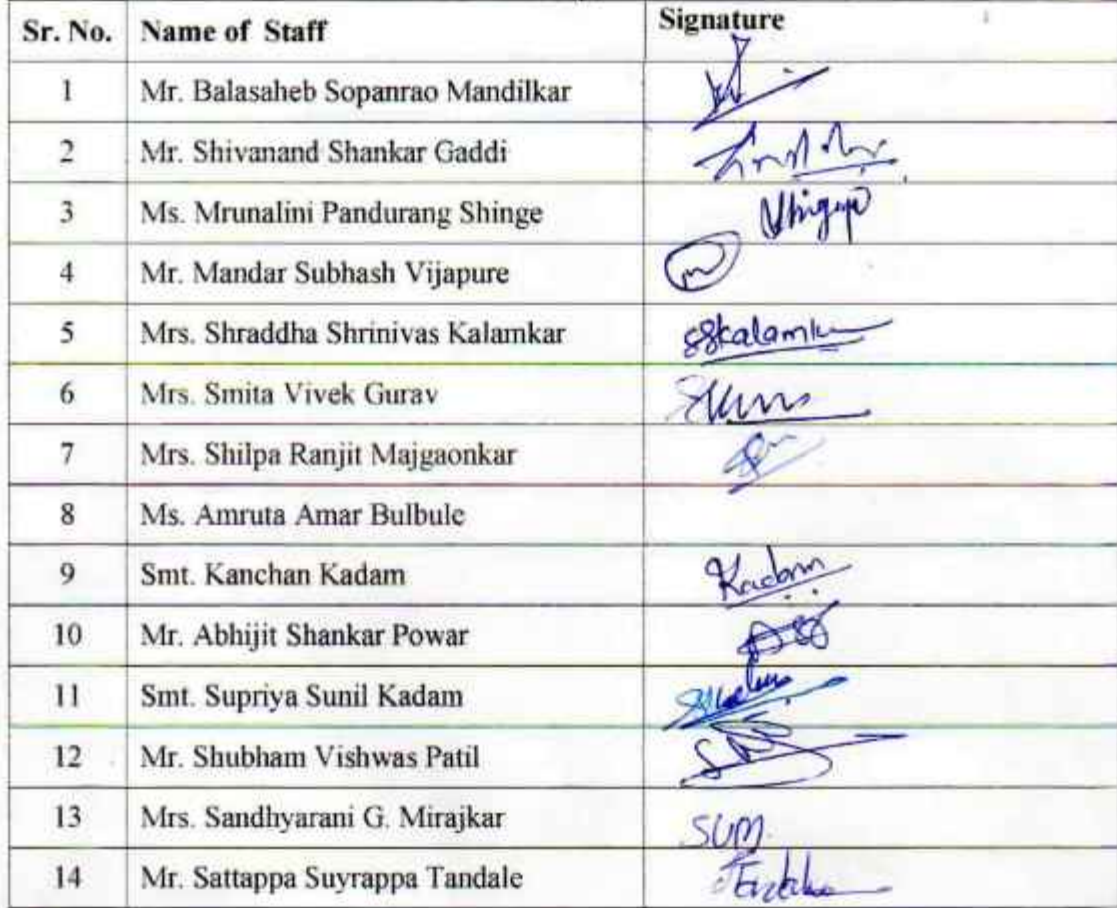 Sr. No. Name of Staff Signature
1 Mr. Balasaheb Sopanrao Mandilkar
2 Mr. Shivanand Shankar Gaddi
3 Ms. Mrunalini Pandurang Shinge
4 Mr. Mandar Subhash Vijapure
5 Mrs. Shraddha Shrinivas Kalamkar
6 Mrs. Smita Vivek Gurav
7 Mrs. Shilpa Ranjit Majgaonkar
8 Ms. Amruta Amar Bulbule
9 Smt. Kanchan Kadam Kadam
10 Mr. Abhijit Shankar Powar
11 Smt. Supriya Sunil Kadam
12 Mr. Shubham Vishwas Patil
13 Mrs. Sandhyarani G. Mirajkar SUM
14 Mr. Sattappa Suyrappa Tandale